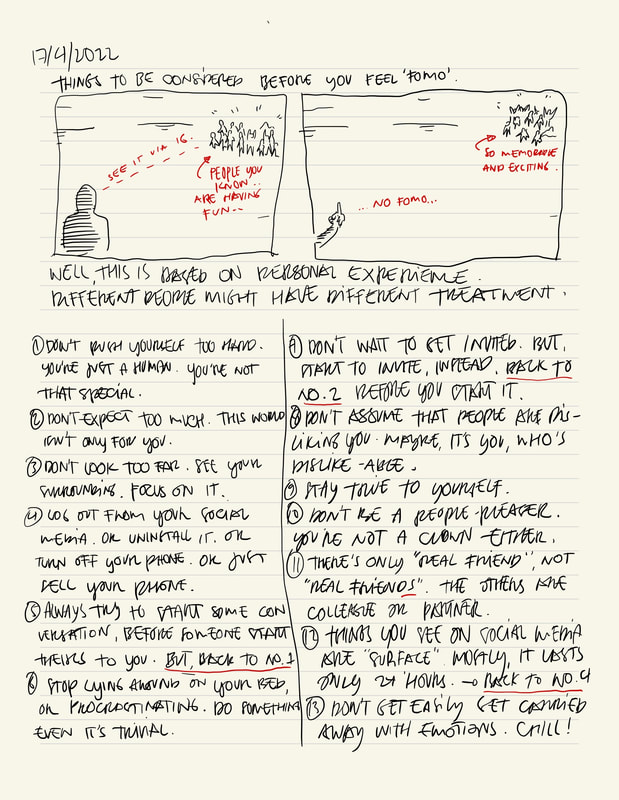 17/4/2022
THINGS TO BE CONSIDERED BEFORE YOU FEEL 'FOMO'.
SEE IT VIA IG.
PEOPLE YOU
KNOW..
ARE HAVING
FUN...
SO MEMORABLE
AND EXCITING.
... NO FOMO...
WELL, THIS IS BASED ON PERSONAL EXPERIENCE.
DIFFERENT PEOPLE MIGHT HAVE DIFFERENT TREATMENT.
① DON'T PUSH YOURSELF TOO HARD.
YOU'RE JUST A HUMAN. YOU'RE NOT
THAT SPECIAL.
② DON'T EXPECT TOO MUCH. THIS WORLD
ISN'T ONLY FOR YOU.
③ DON'T LOOK TOO FAR. SEE YOUR
SURROUNDING. FOCUS ON IT.
④ LOG OUT FROM YOUR SOCIAL
MEDIA. OR UNINSTALL IT. OR
TURN OFF YOUR PHONE. OR JUST
SELL YOUR PHONE.
⑤ ALWAYS TRY TO START SOME CON
VERSATION, BEFORE SOMEONE START
THEIRS TO YOU. BUT, BACK TO NO. 1
⑥ STOP LYING AROUND ON YOUR BED,
OR PROCRASTINATING. DO SOMETHING
EVEN IT'S TRIVIAL.
DON'T WAIT TO GET INVITED. BUT,
START TO INVITE, INSTEAD. BACK TO
NO. 2 BEFORE YOU START IT.
⑧ DON'T ASSUME THAT PEOPLE ARE DIS-
LIKING YOU. MAYBE, IT'S YOU, WHO'S
DISLIKE-ABLE.
⑨ STAY TRUE TO YOURSELF.
⑩ DON'T BE A PEOPLE-PLEASER.
YOU'RE NOT A CLOWN EITHER.
⑪ THERE'S ONLY "REAL FRIEND", NOT
"REAL FRIENDS". THE OTHERS ARE
COLLEAGUE OR PARTNER.
⑫ THINGS YOU SEE ON SOCIAL MEDIA
ARE "SURFACE". MOSTLY, IT LASTS
ONLY 24 HOURS. → BACK TO NO. 4
⑬ DON'T GET EASILY GET CARRIED
AWAY WITH EMOTIONS. CHILL!